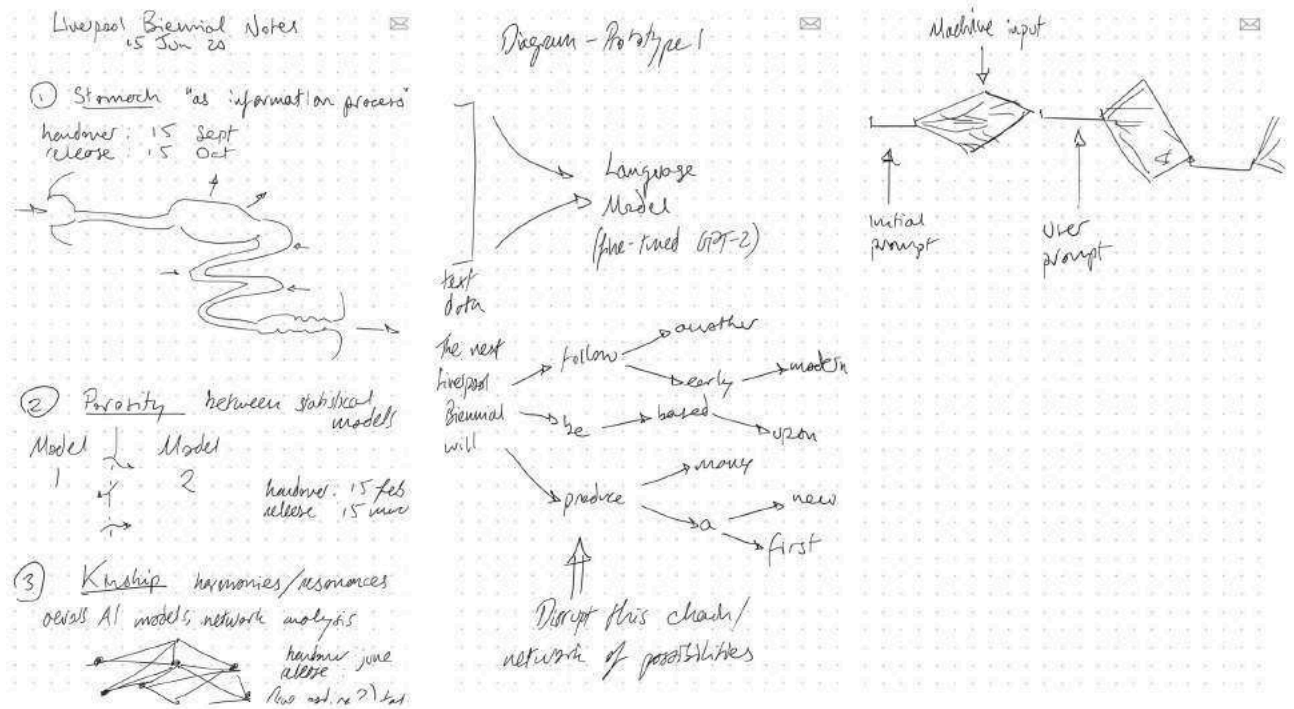 Liverpool Biennial Notes
15 Jun 20
1 Stomach "as information process"
handover: 15 Sept
release: 15 Oct
2 Porosity between statistical
models
Model Model
1 2
handover: 15 feb
release 15 mar
3 Kinship harmonies/resonances
across AI models, network analysis
handover: june
release:
Diagram - Prototype 1
Language
Model
(fine-tuned GPT-2)
text
data
The next
Liverpool
Biennial
will
follow
another
early
modern
be
based
upon
produce
many
a
new
first
Disrupt this chain/
network of possibilities
Machine input
initial
prompt
user
prompt